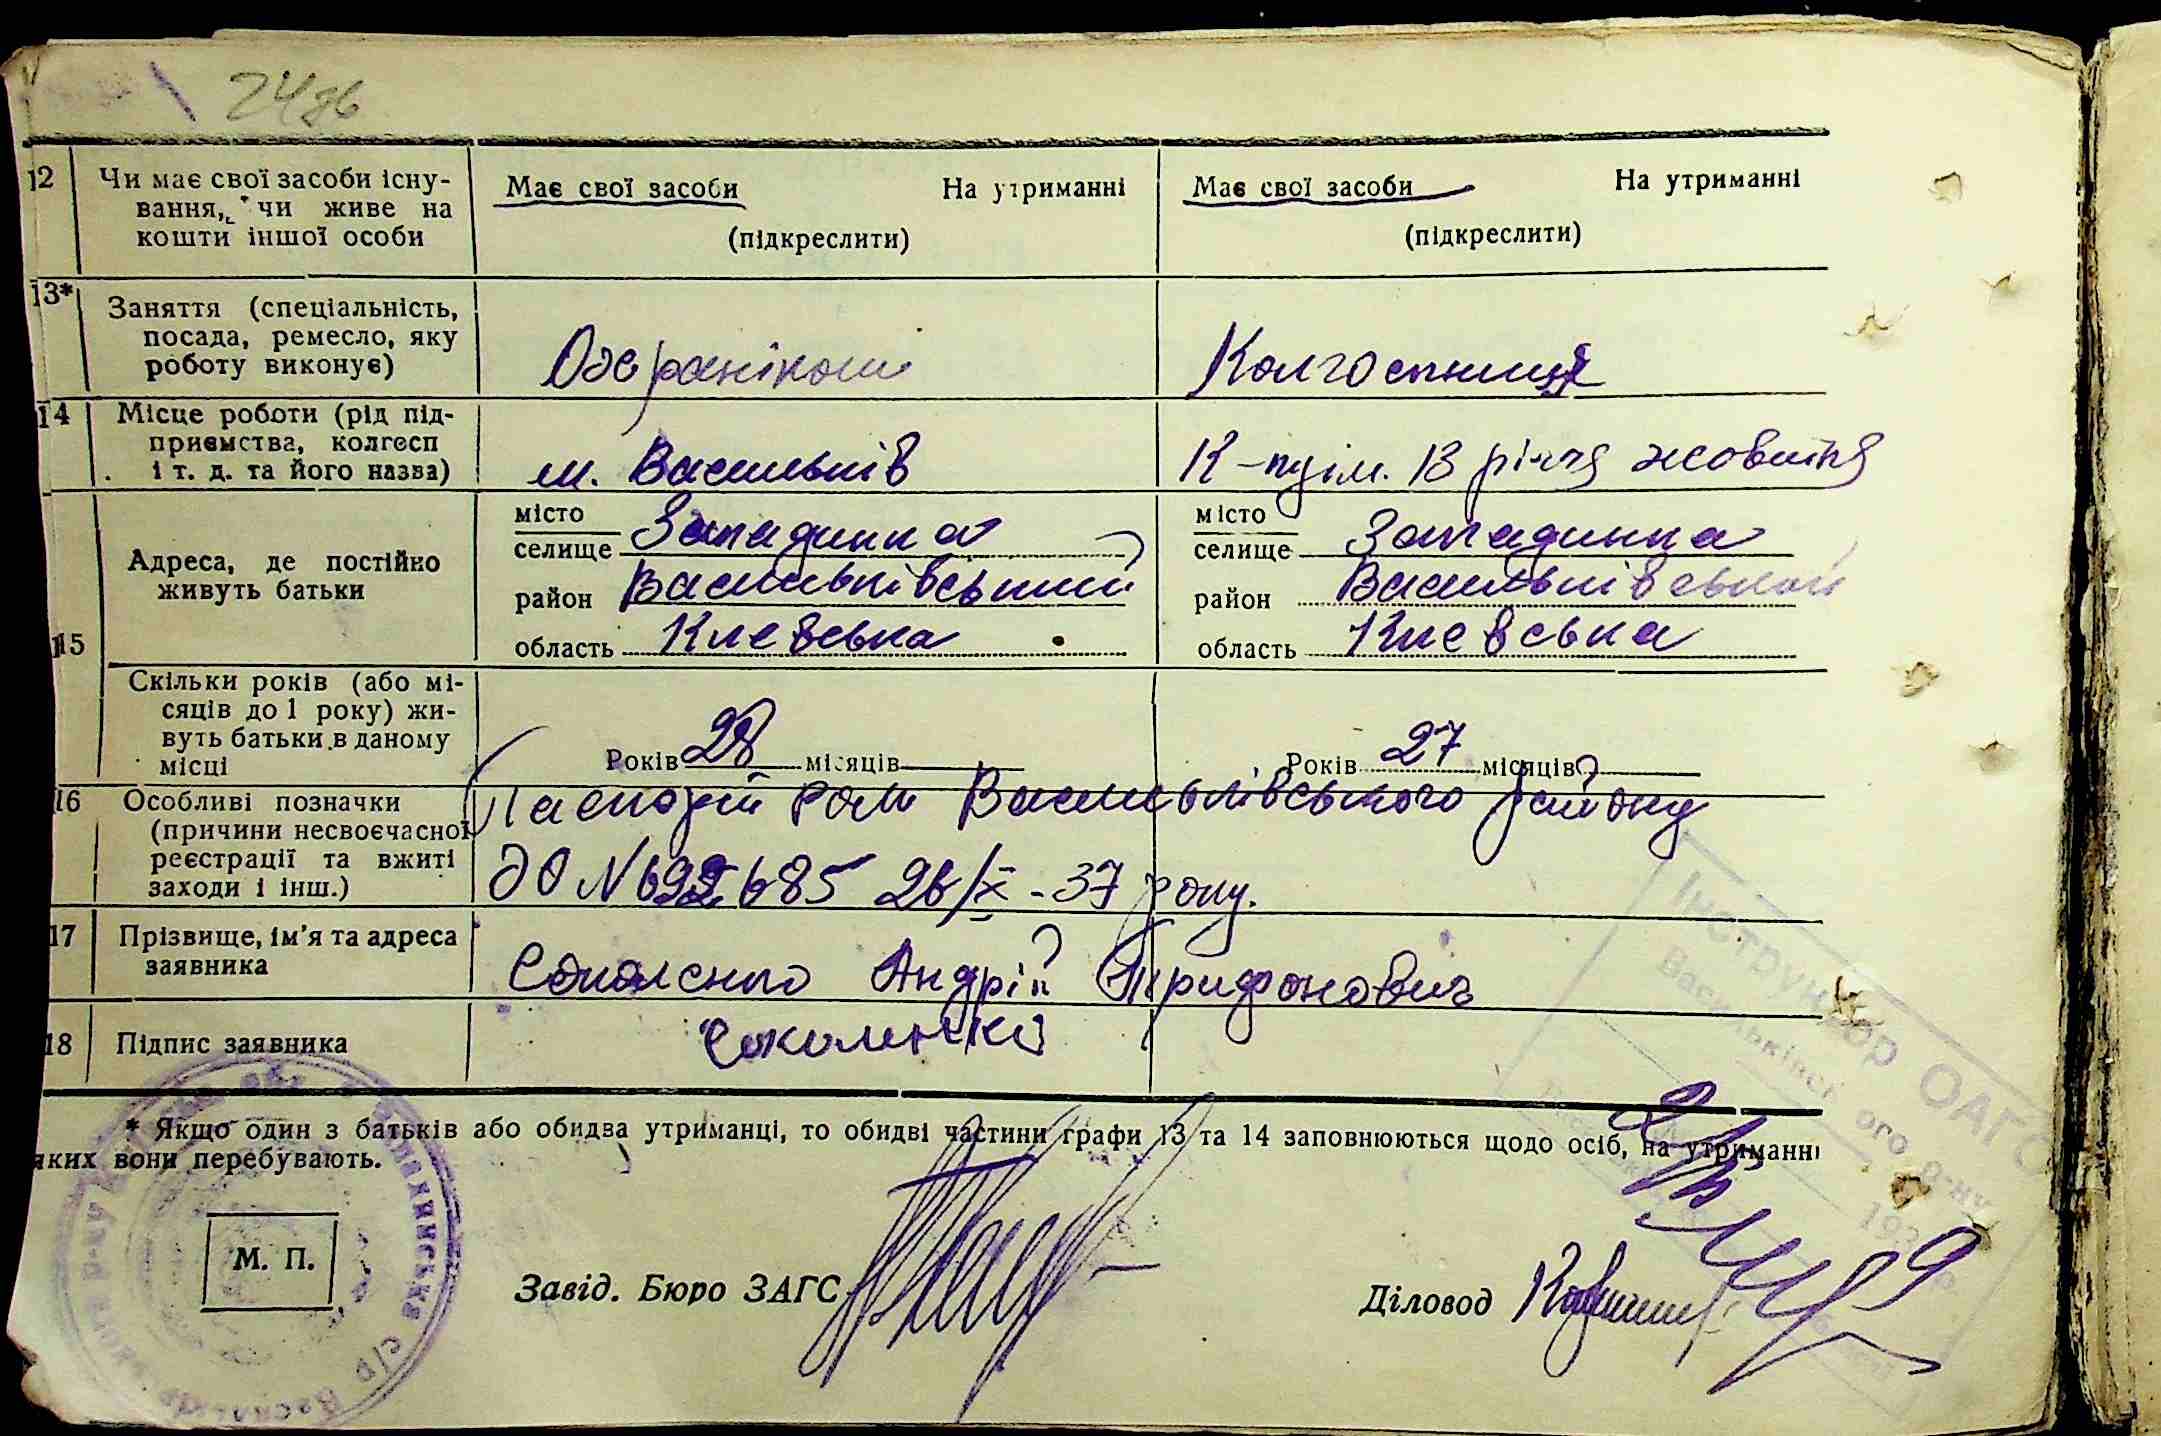 12 Чи має свої засоби існу-
вання, чи живе на
кошти іншої особи
Має свої засоби На утриманні
(підкреслити)
Має свої засоби На утриманні
(підкреслити)
13* Заняття (спеціальність,
посада, ремесло, яку
роботу виконує)
Колгоспниця
14 Місце роботи (рід під-
приємства, колгосп
і т. д. та його назва)
м. Васильків
К-п ім. 13 річчя жовтня
15 Адреса, де постійно
живуть батьки
місто
селище Западинка
район Васильківський
область Киевська
місто
селище Западинка
район Васильківський
область Киевська
Скільки років (або мі-
сяців до 1 року) жи-
вуть батьки в даному
місці
Років 28 місяців
Років 27 місяців
16 Особливі позначки
(причини несвоєчасної
реєстрації та вжиті
заходи і інш.)
Паспорт Васильківського району
26/X-37 року.
17 Прізвище, ім'я та адреса
заявника
Соколенко Андрій Трифонович
18 Підпис заявника
Соколенко
* Якщо один з батьків або обидва утриманці, то обидві частини графи 13 та 14 заповнюються щодо осіб, на утриманні
яких вони перебувають.
М. П.
Завід. Бюро ЗАГС
Діловод
Інструктор ОАГС